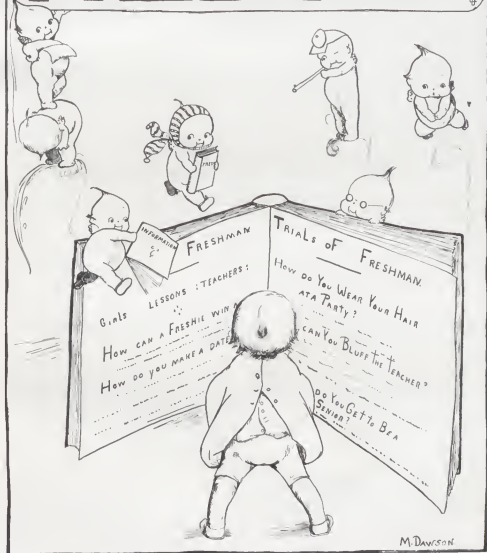 FACTS
INFORMATION
FRESHMAN
GIRLS LESSONS : TEACHERS :
HOW CAN A FRESHIE WIN A
HOW DO YOU MAKE A DATE
TRIALS OF FRESHMAN
HOW DO YOU WEAR YOUR HAIR
AT A PARTY ?
CAN YOU BLUFF THE TEACHER ?
DO YOU GET TO BE A
SENIOR ?
M. DAWSON